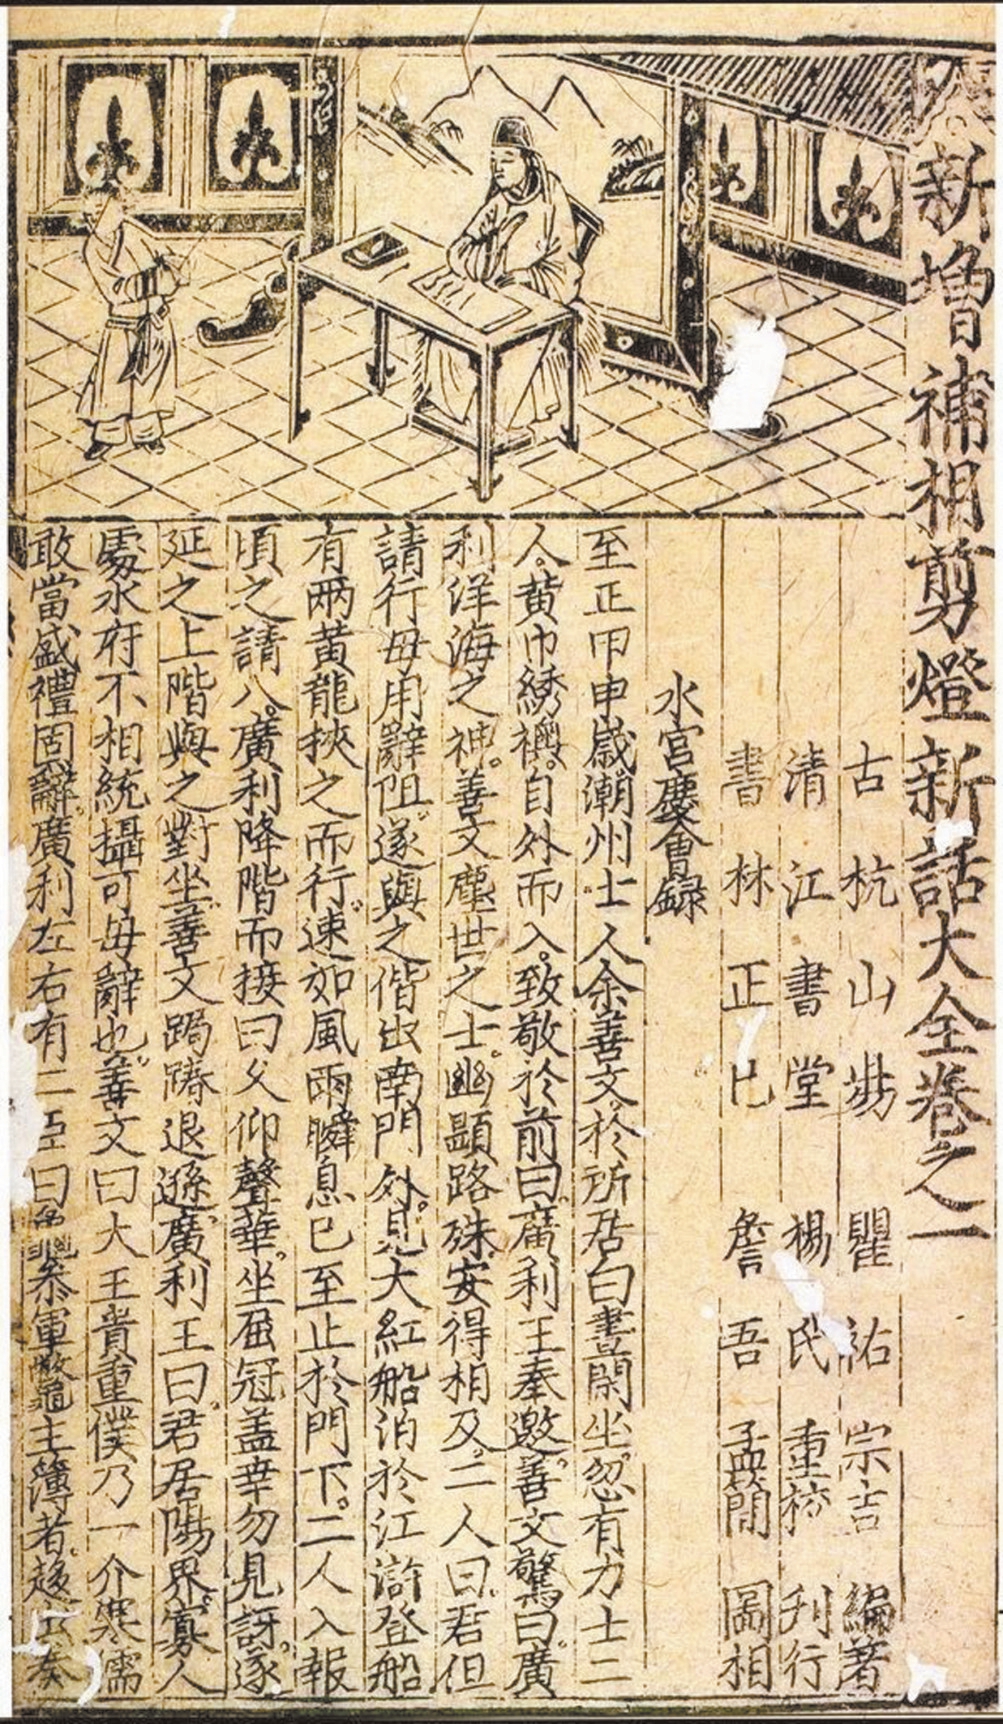 新增補相剪燈新話大全卷之一
古杭山陽瞿祐宗吉編著
清江書堂楊氏重校刋行
書林正己詹吾孟簡圖相
水宮慶會録
至正甲申歲潮州士人余善文於所居白晝閑坐忽有力士二
人黄巾綉襖自外而入致敬於前曰廣利王奉邀善文驚曰廣
利洋海之神善文塵世之士幽顯路殊安得相及二人曰君但
請行毋用辭阻遂與之偕出南門外見大紅船泊於江滸登船
有兩黄龍挾之而行速如風雨瞬息已至止於門下二人入報
頃之請入廣利降階而接曰久仰聲華坐屈冠盖幸勿見訝遂
延之上階與之對坐善文跼蹐退遜廣利王曰君居陽界寡人
處水府不相統攝可毋辭也善文曰大王貴重僕乃一介寒儒
敢當盛禮固辭廣利左右有二臣曰黿參軍鼈主簿者趍出奏